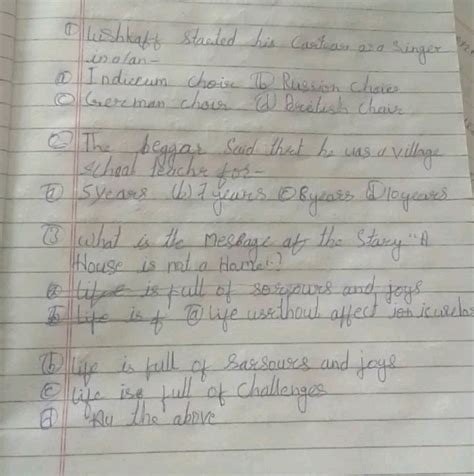 ① Lushkaff Started his Carrear as a Singer
in a/an -
ⓐ Indicum choir ⓑ Russion Choir
ⓒ Gereman choir ⓓ Breetish Choir
② The beggar Said that he was a village
school teachr for-
ⓐ 5 years (b) 7 years ⓒ 8 years ⓓ 10 years
③ What is the Message of the Story "A
House is not a Home"?
ⓐ life is full of sorrours and joys
ⓑ life is f ⓐ life without affect
ⓑ life is full of Sarsours and joys
ⓒ life ise full of Challenges
ⓓ All the above